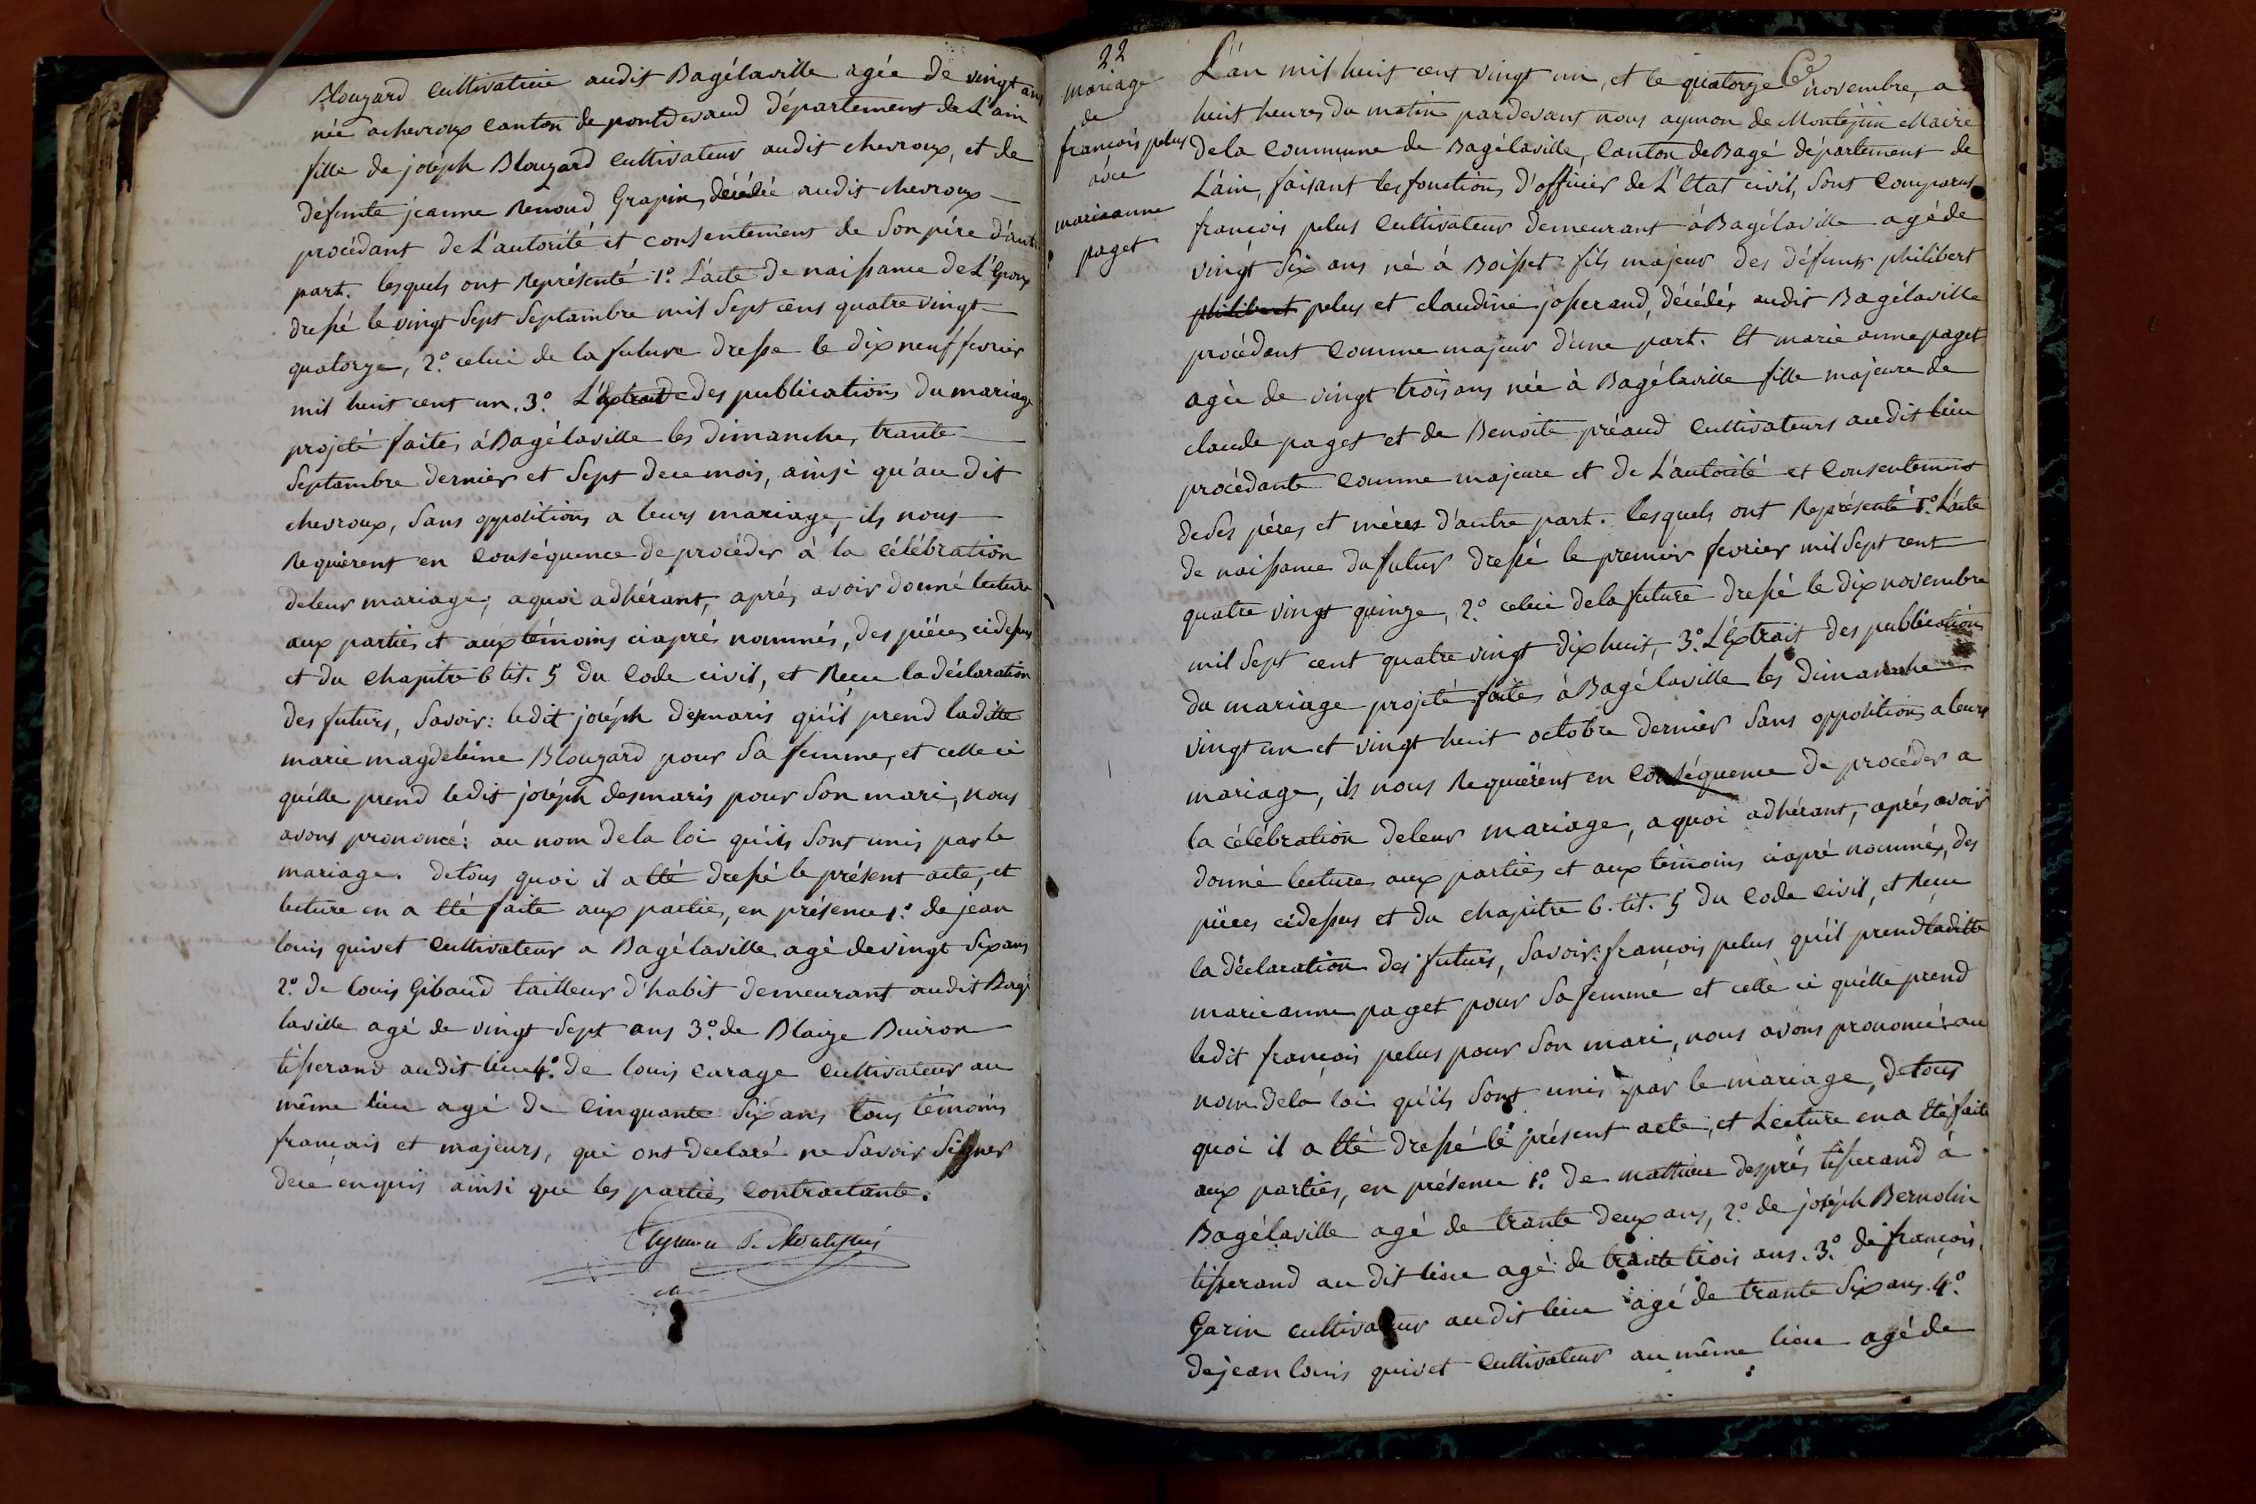 Blouzard cultivatrice audit Bagélaville agée de vingt ans
née a chevroux canton de pontdevaud département de L'ain
fille de joseph Blouzard cultivateur audit chevroux, et de
défunte jeanne Renoud Grapin, décédée audit chevroux
procédant de L'autorité et consentement de Son père d'autre
part. lesquels ont Représenté 1.º L'acte de naissance de L'Epoux
dressé le vingt Sept Septambre mil Sept cens quatre vingt
quatorze, 2.º celui de la future dresse le dix neuf fevrier
mil huit cent un. 3.º L'Extrait des publications du mariage
projeté faites á Bagélaville les dimanche, trante
Septambre dernier et Sept de ce mois, ainsi qu'au dit
chevroux, Sans oppositions a leurs mariage, ils nous
Requièrent en Conséquence de procéder à la célébration
de leur mariage; aquoi adhérant, aprés avoir donné lecture
aux parties et aux témoins ciaprés nommés, des piéces cidessus
et du chapitre 6 tit. 5 du Code civil, et Recu la déclaration
des futurs, Savoir: ledit joséph desmaris qu'il prend laditte
marie magdeleine Blouzard pour Sa femme, et celle ci
qu'elle prend ledit joséph desmaris pour Son mari, nous
avons prononcé: au nom de la loi qu'ils Sont unis par le
mariage. detous quoi il a été dressé le présent acte, et
lecture en a été faite aux partie, en présence 1.º de jean
louis quivet Cultivateur a Bagélaville agé de vingt Six ans
2.º de louis Gibaud tailleur d'habit demeurant audit Bagé
laville agé de vingt Sept ans 3.º de Blaize Buiron
tisserand audit lieu 4.º de louis curage cultivateur au
même lieu agé de Cinquante Six ans tous témoins
français et majeurs, qui ont declaré ne Savoir Signer
dece enquis ainsi que les parties Contractante.
Aymon de Montépin
22
mariage
de
françois pelus
avec
marieanne
paget
L'an mil huit cent vingt un, et le quatorze Ce novembre, a
huit heures du matin pardevant nous aymon de Montépin Maire
de la Commune de Bagélaville, Canton de Bagé département de
L'ain, faisant les fonctions d'officier de L'Etat civil, Sont Comparus
françois pelus Cultivateur demeurant á Bagélaville agé de
vingt Six ans né á Boisset fils majeur des défunts philibert
philibert pelus et claudine josserand, décédés audit Bagélaville
procédant Comme majeur d'une part. Et marie anne paget
agée de vingt trois ans née à Bagélaville fille majeure de
claude paget et de Benoite préaud Cultivateurs audit lieu
procédante Comme majeure et de L'autorité et Consentement
de Ses péres et méres d'autre part. Lesquels ont Représenté 1.º L'acte
de naissance du futur dressé le premier fevrier mil Sept cent
quatre vingt quinze, 2.º celui de la future dressé le dix novembre
mil Sept cent quatre vingt dix huit, 3.º L'Extrait des publications
du mariage projeté faites á Bagélaville les dimanche
vingt un et vingt huit octobre dernier Sans oppositions a leurs
mariage, ils nous Requièrent en Conséquence de procéder a
la célébration de leur mariage, aquoi adhérant, aprés avoir
donné lecture aux parties et aux témoins ciapré nommés, des
piéces cidessus et du chapitre 6. tit. 5 du Code Civil, et Recu
la déclaration des futurs, Savoir: françois pelus qu'il prend laditte
marieanne paget pour Sa femme et celle ci qu'elle prend
ledit françois pelus pour Son mari, nous avons prononcé: au
nom de la loi qu'ils Sont unis par le mariage, detous
quoi il a été dressé le présent acte, et Lecture en a été faite
aux parties, en présence 1.º de mathieu després tisserand á
Bagélaville agé de trante deux ans, 2.º de joséph Bernolin
tisserand au dit lieu agé de trante trois ans. 3.º de françois
Garin cultivateur audit lieu agé de trante Six ans. 4.º
de jean louis quivet Cultivateur au même lieu agé de